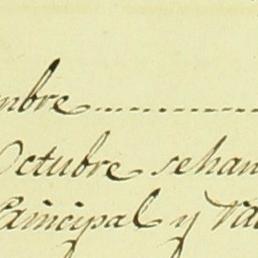 mbre
Octubre sehan
Principal y Va